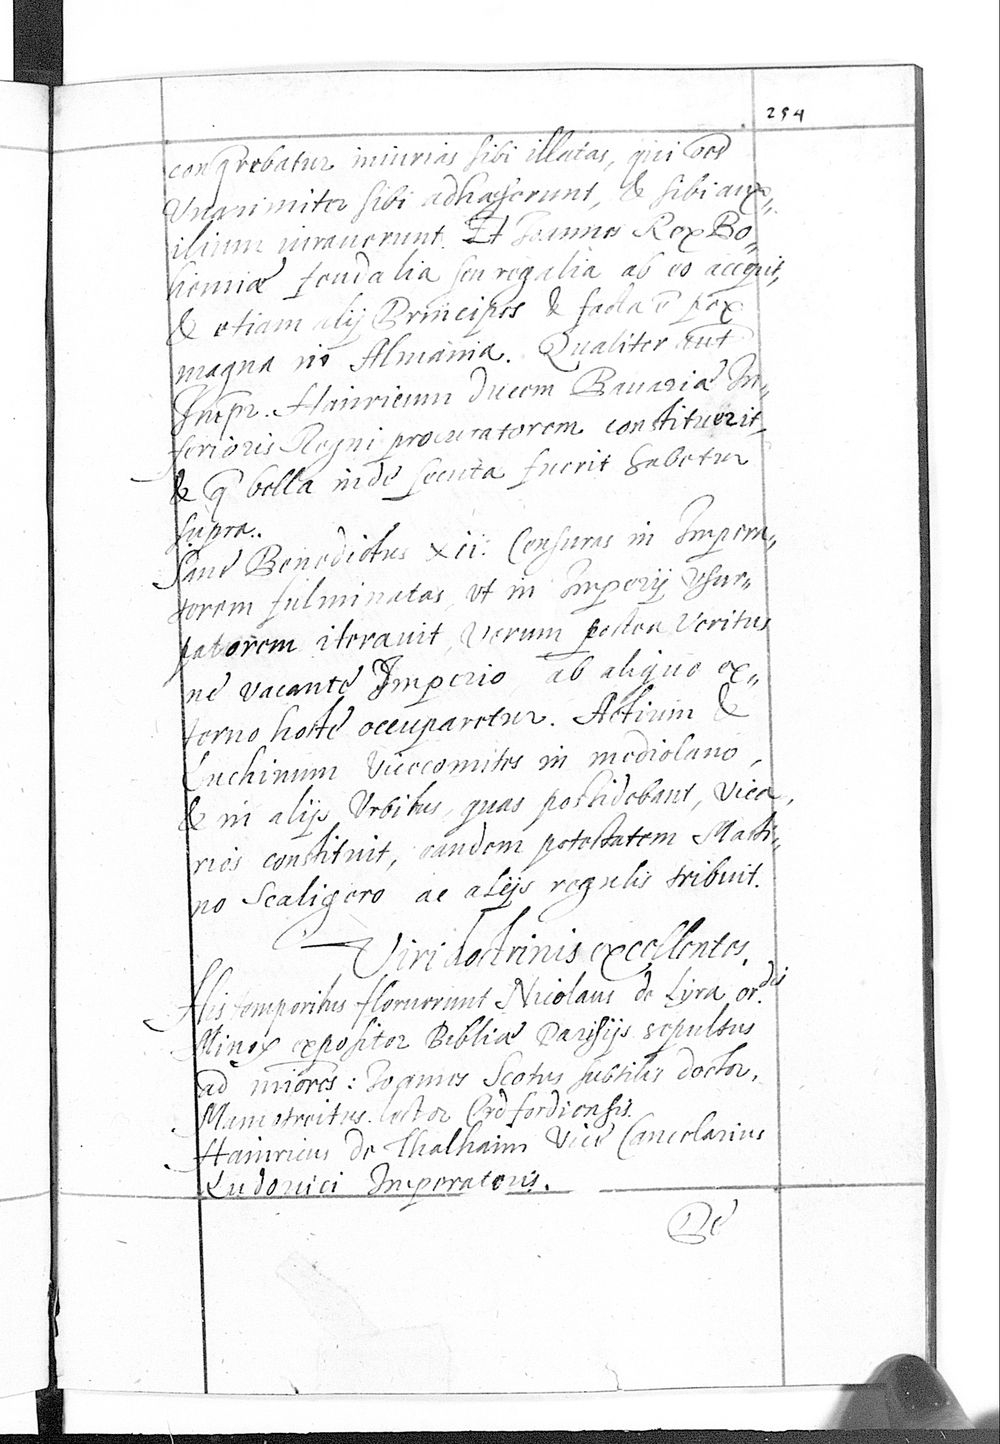 254
conqrebatur iniurias sibi illatas, qui oēs
Vnanimiter sibi adhaeserunt, & sibi aux„
ilium iurauerunt. Et Joannes Rex Bo„
hemiae feudalia seu regalia ab eo accepit,
& etiam alij Principes & facta ē pax
magna in Almania. Qualiter aut
Impr. Hainricum Ducem Bauariae In„
ferioris Regni procuratorem constituerit,
& q bella inde secuta fuerit habetur
supra..
Sane Benedictus xii: Censuras in Impera„
torem fulminatas, vt in Imperij Vsur„
patorem iterauit, Verum postea Veritus
ne vacante Imperio ab aliquo ex„
terno hoste occuparetur. Actium &
Luchinum Vicecomites in mediolano,
& in alijs Vrbibus, quas possidebant, Vica„
rios constituit, eandem potestatem Masti„
no Scaligero ac alijs regulis tribuit.
Viri doctrinis excellentes.
His temporibus floruerunt Nicolaus de Lyra or.dis
Minor expositor Bibliae Parisijs sepultus
ad miores: Joannes Scotus subtilis doctor.
Mamotreitus lector Oxdfordiensis.
Hainricus de Thalhaim Vice Cancelarius
Ludouici Imperatoris.
De